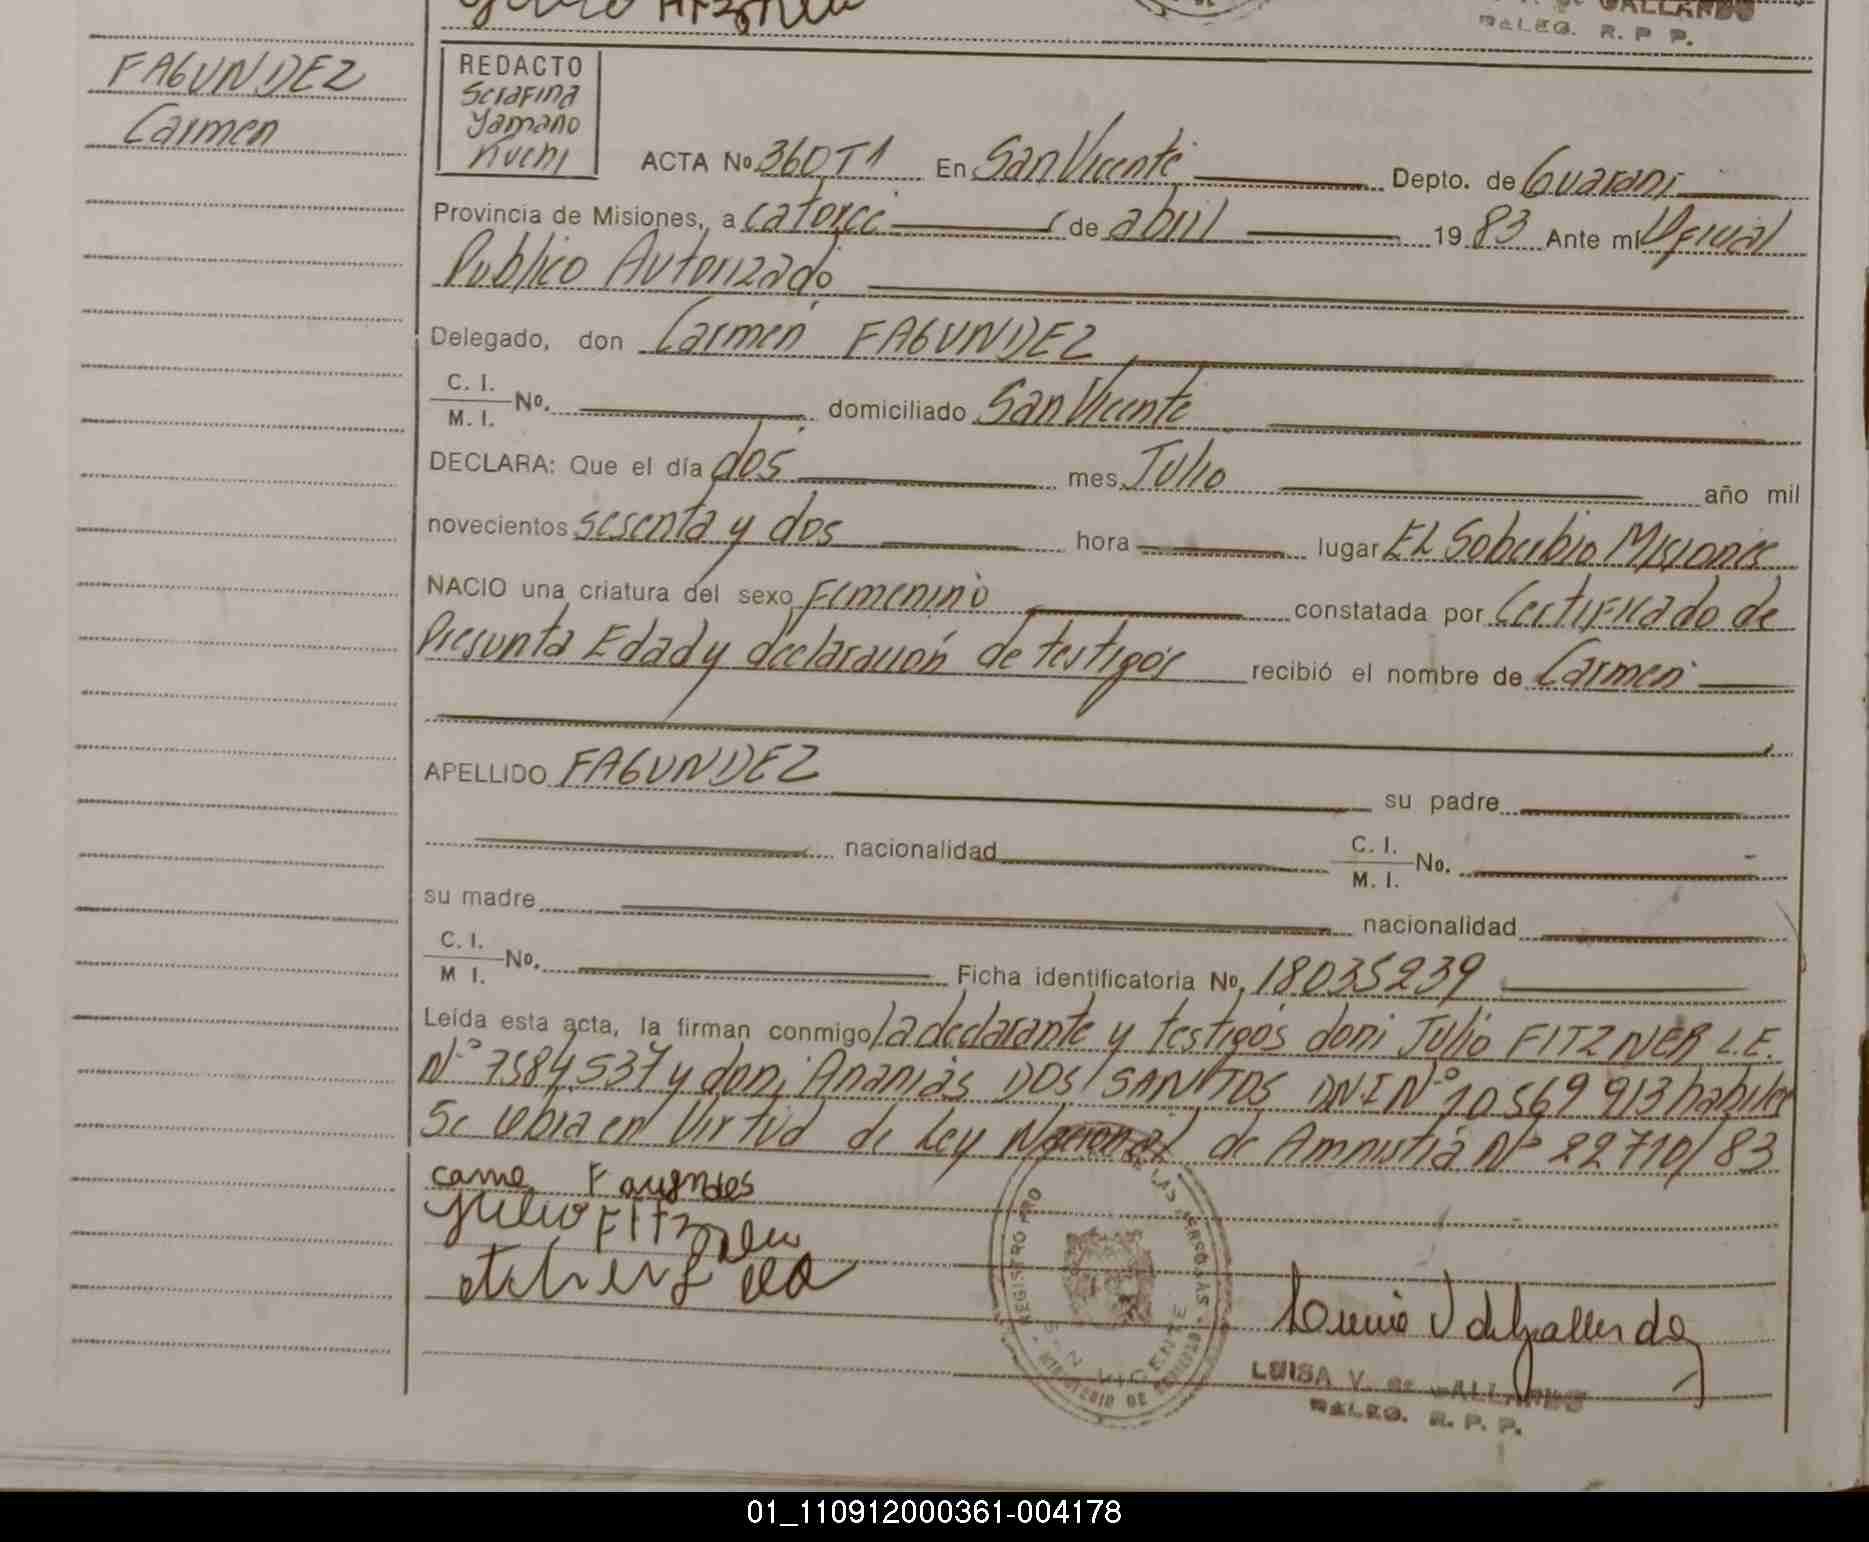 GALLARDO
DALEG. R. P P.
FAGUNDEZ
Carmen
REDACTO
Serafina
Yamano
Kuchi
ACTA No 360 T1 En San Vicente Depto. de Guarani
Provincia de Misiones, a catorce de abril 19 83 Ante mi Oficial
Publico Autorizado
Delegado, don Carmen FAGUNDEZ
C. I.
M. I. No. domiciliado San Vicente
DECLARA: Que el día dos mes Julio año mil
novecientos sesenta y dos hora lugar EL Soberbio Misiones
NACIO una criatura del sexo Femenino constatada por Certificado de
Presunta Edad y declaración de testigos recibió el nombre de Carmen
APELLIDO FAGUNDEZ su padre
nacionalidad C. I.
M. I. No.
su madre nacionalidad
C. I.
M I. No. Ficha identificatoria No. 18035239
Leída esta acta, la firman conmigo la declarante y testigos don: Julio FITZNER L.E.
Nº 7584537 y don: Ananias DOS SANTOS DNI Nº 10569913 habiles
Se labra en Virtud de Ley Nacional de Amnistia Nº 22710/83
Julio FITZner
REGISTRO PRO DE LAS PERSONAS
SAN VICENTE
LUISA V. de GALLARDO
DALEG. R. P. P.
01_110912000361-004178